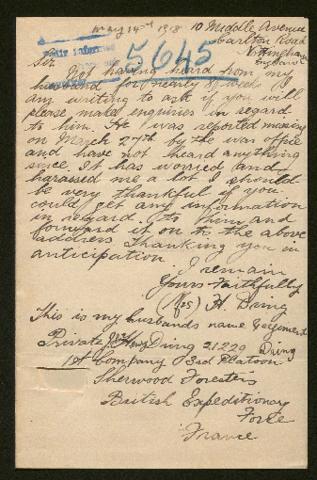 May 14th 1918 10 Middle Avenue
Carlton Road
Nottingham
England
5645
Sir
Not having heard from my
husband for nearly 8 weeks I
am writing to ask if you will
please make enquiries in regard
to him. He was reported missing
on March 27th by the war office
and have not heard anything
since. It has worried and
harassed me a lot I should
be very thankful if you
could get any information
in regard to him and
forward it on to the above
address Thanking you in
anticipation
I remain
Yours Faithfully
(Mrs) H. Dring
This is my husbands name
Private Dring 21229
1st Company 3rd Platoon
Sherwood Foresters
British Expeditionary
Force
France